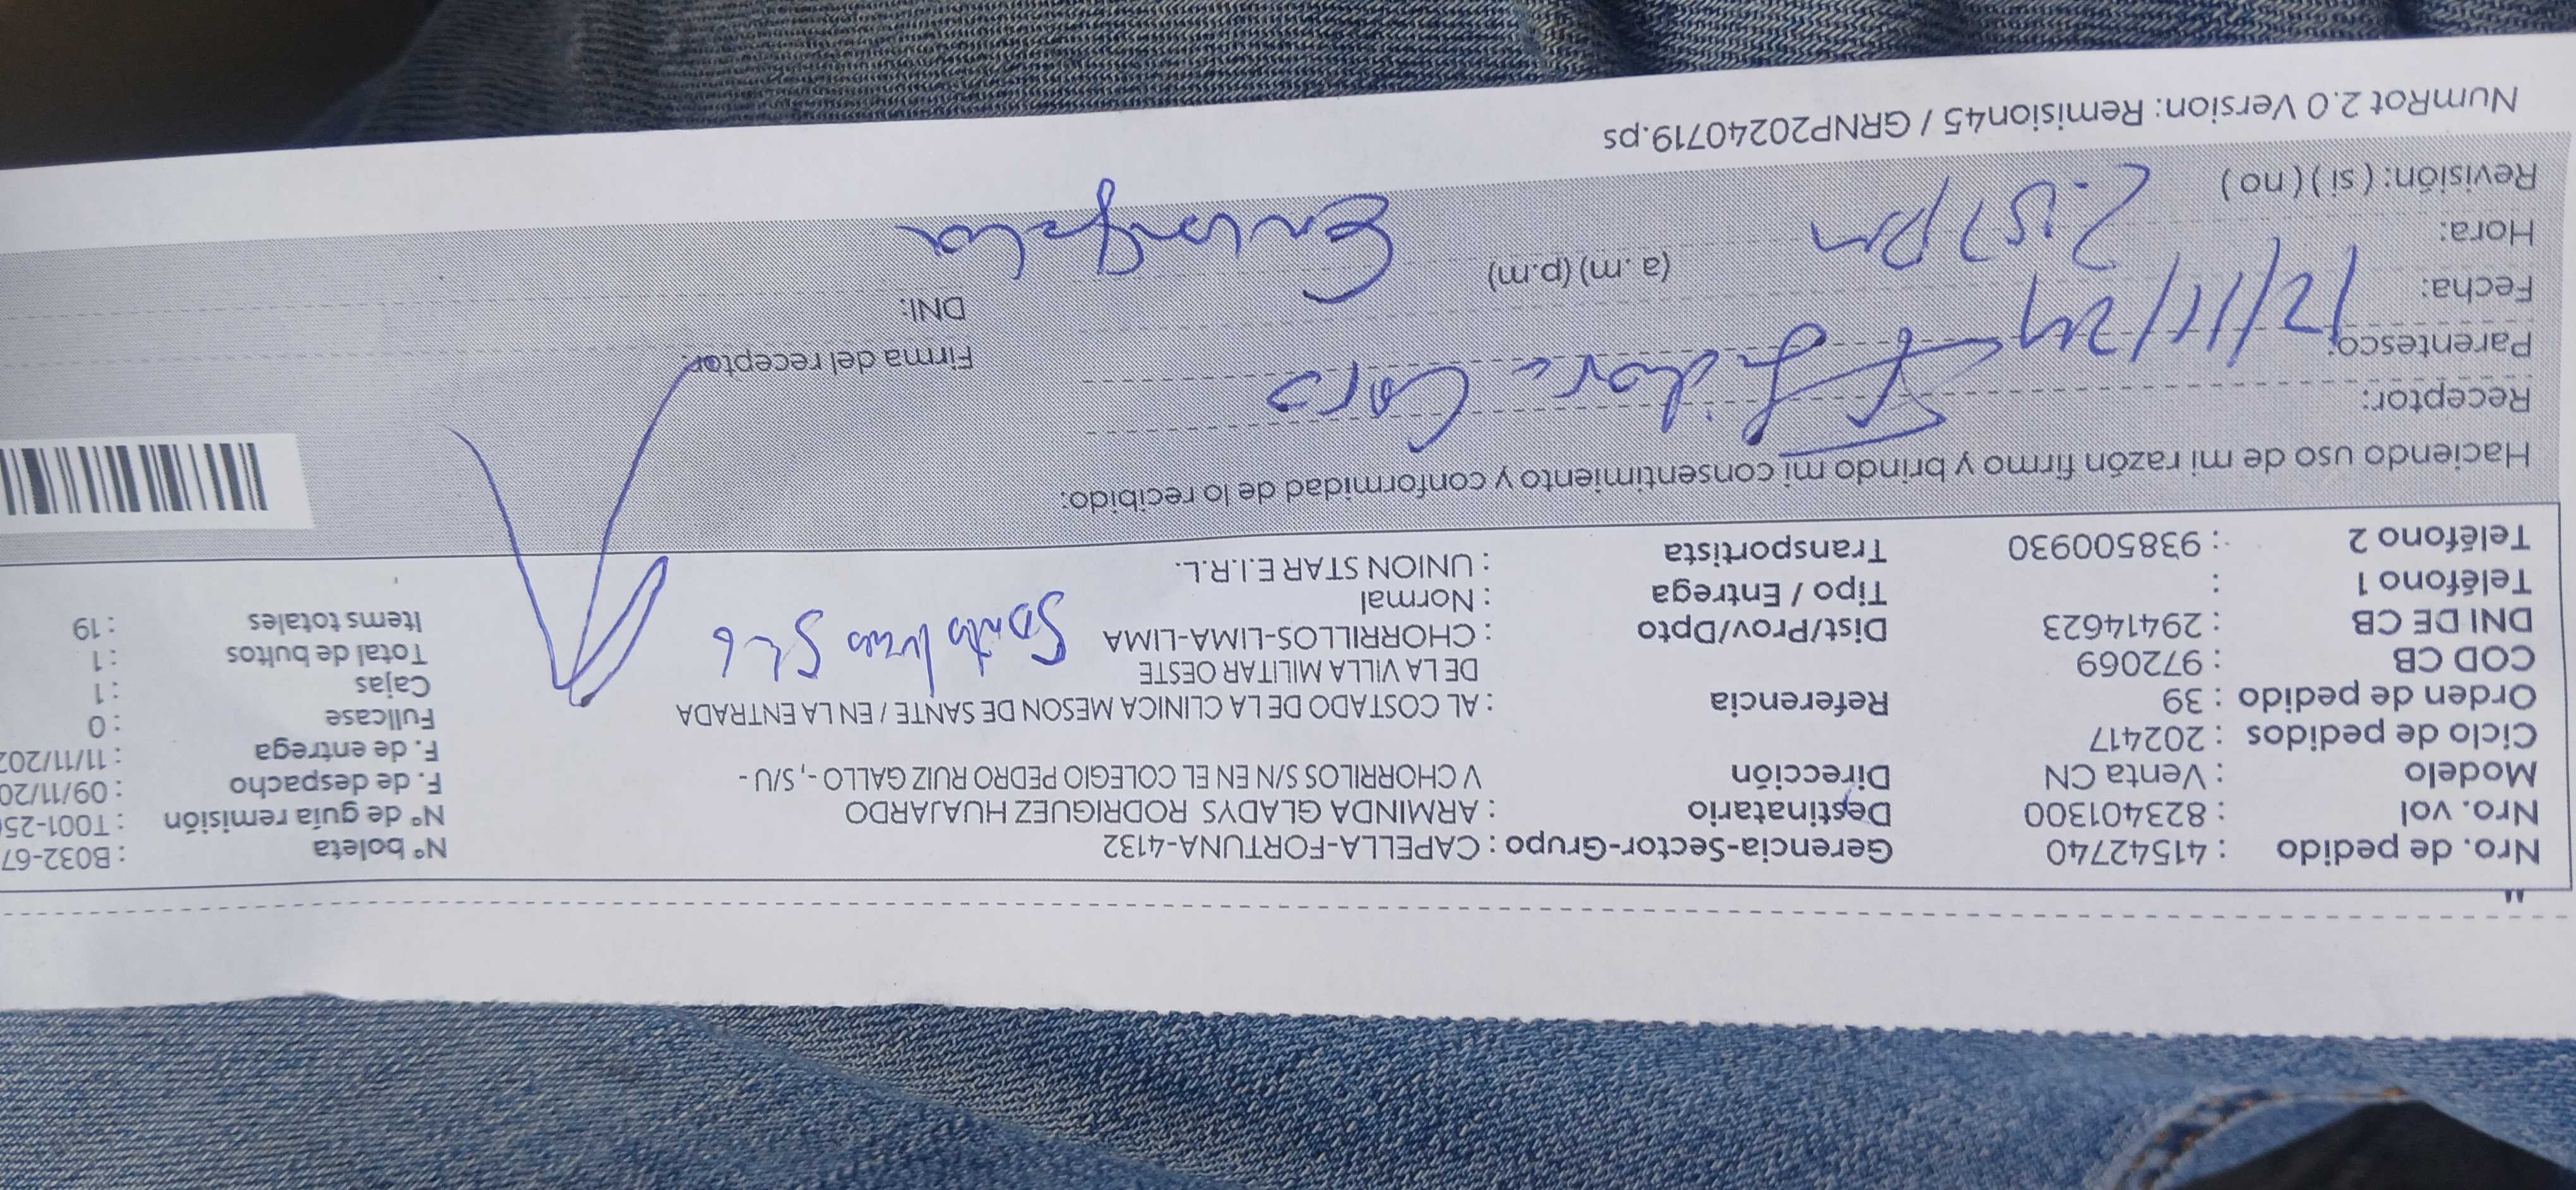 Nro. de pedido : 41542740 Gerencia-Sector-Grupo : CAPELLA-FORTUNA-4132 N° boleta : B032-67
Nro. vol : 823401300 Destinatario : ARMINDA GLADYS RODRIGUEZ HUAJARDO N° de guía remisión : T001-25
Modelo : Venta CN Dirección V CHORRILOS S/N EN EL COLEGIO PEDRO RUIZ GALLO -, S/U - F. de despacho : 09/11/20
Ciclo de pedidos : 202417 F. de entrega : 11/11/202
Orden de pedido : 39 Referencia : AL COSTADO DE LA CLINICA MESON DE SANTE / EN LA ENTRADA Fullcase : 0
COD CB : 972069 DE LA VILLA MILITAR OESTE Cajas : 1
DNI DE CB : 29414623 Dist/Prov/Dpto : CHORRILLOS-LIMA-LIMA Total de bultos : 1
Teléfono 1 : Tipo / Entrega : Normal Items totales : 19
Teléfono 2 : 938500930 Transportista : UNION STAR E.I.R.L.
Haciendo uso de mi razón firmo y brindo mi consentimiento y conformidad de lo recibido:
Receptor: Caro
Parentesco: Firma del receptor:
Fecha: 12/11/24 DNI:
Hora: 2:57 pm (a.m) (p.m)
Revisión: ( si ) ( no )
NumRot 2.0 Version: Remision45 / GRNP20240719.ps